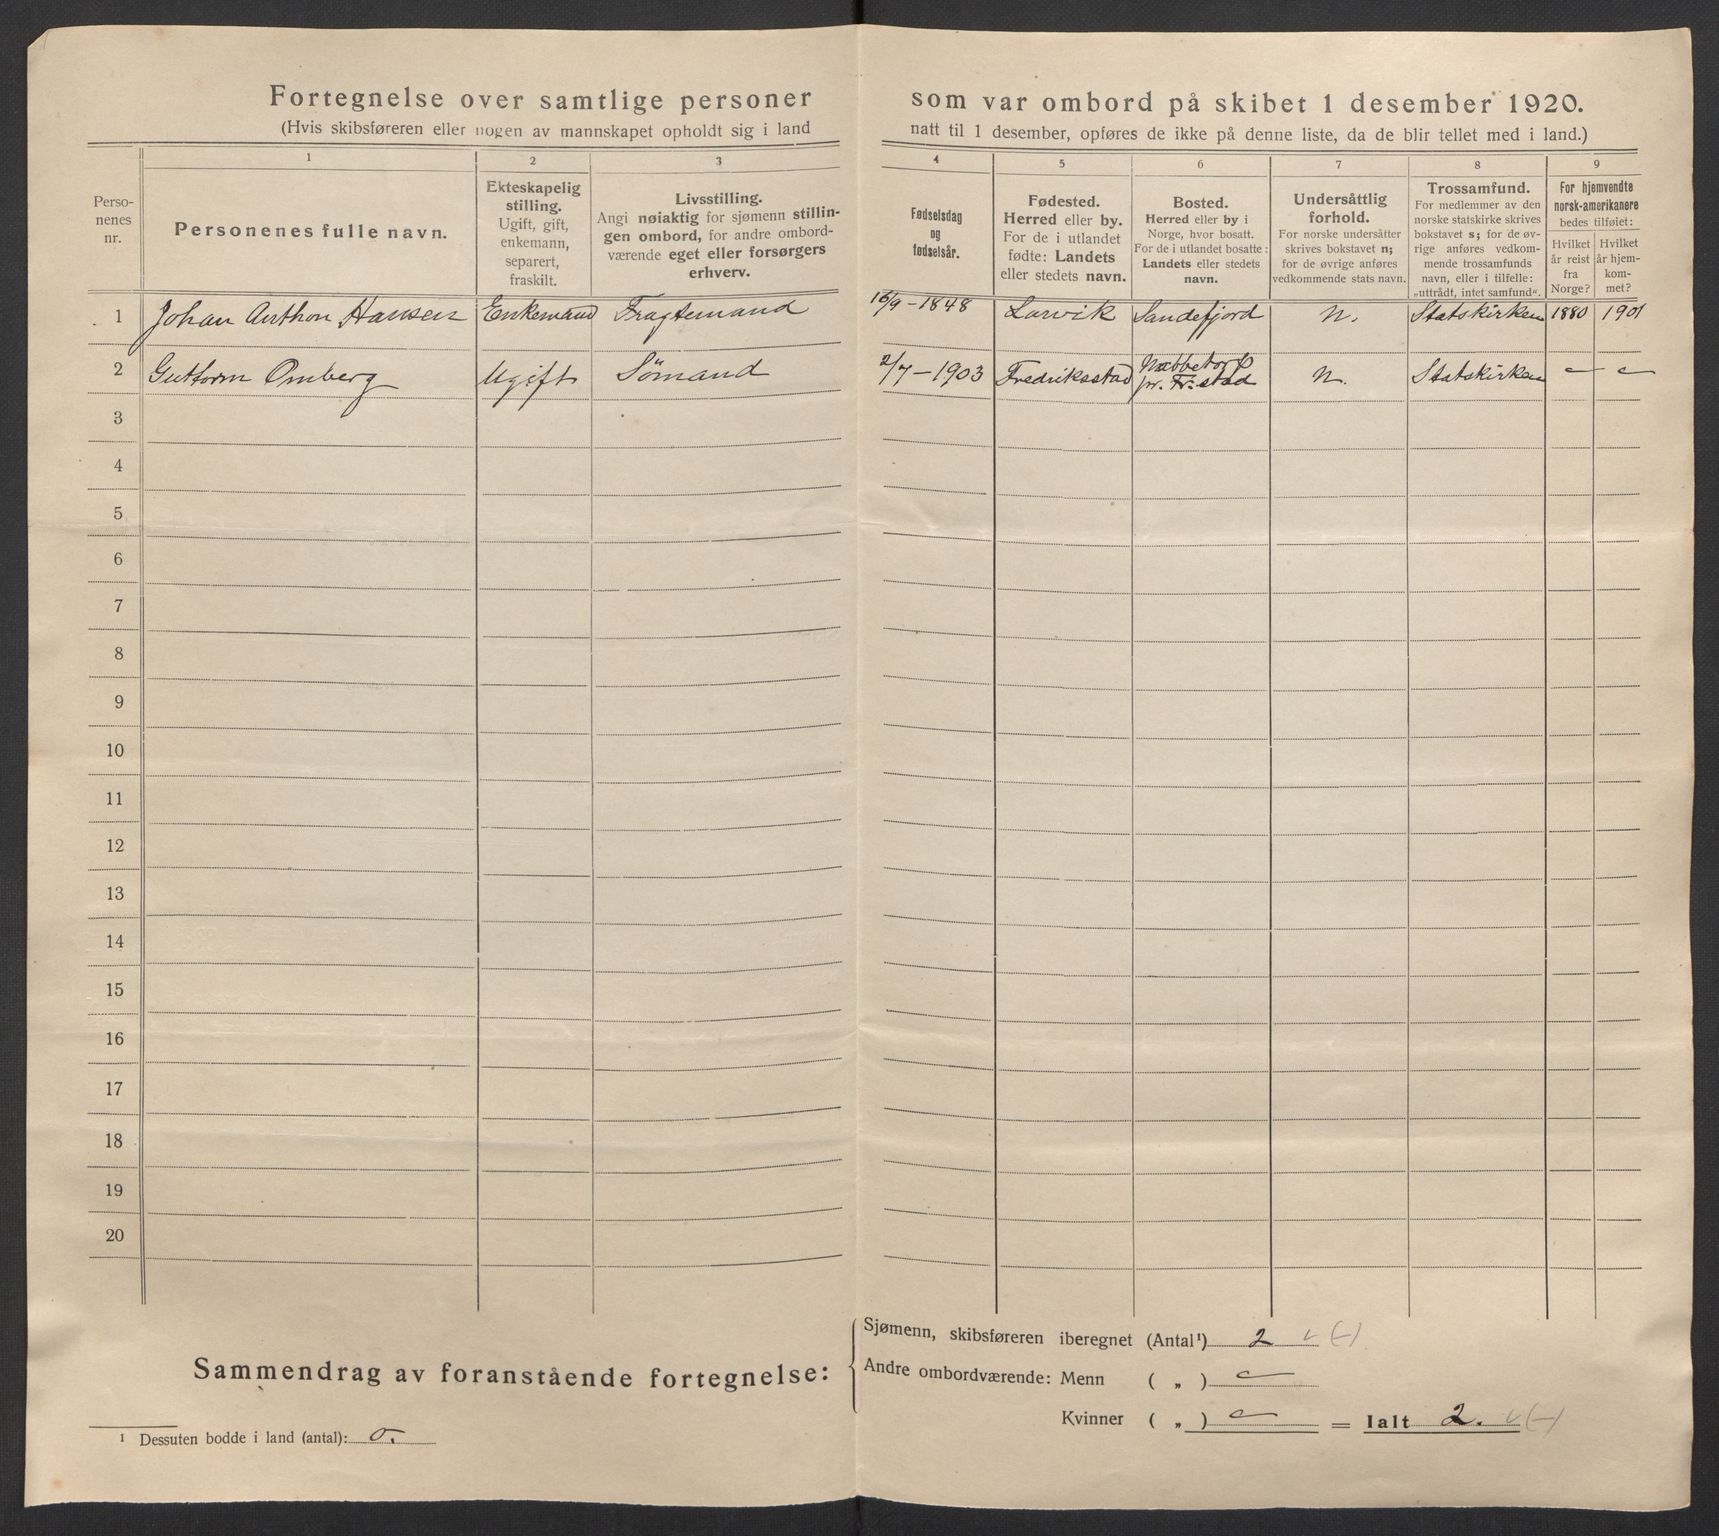 Fortegnelse over samtlige personer som var ombord på skibet 1 desember 1920.
(Hvis skibsføreren eller nogen av mannskapet opholdt sig i land natt til 1 desember, opføres de ikke på denne liste, da de blir tellet med i land.)
Perso-
nenes
nr.
1
Personenes fulle navn.
2
Ekteskapelig
stilling.
Ugift, gift,
enkemann,
separert,
fraskilt.
3
Livsstilling.
Angi nøiaktig for sjømenn stillin-
gen ombord, for andre ombord-
værende eget eller forsørgers
erhverv.
4
Fødselsdag
og
fødselsår.
5
Fødested.
Herred eller by.
For de i utlandet
fødte: Landets
eller stedets navn.
6
Bosted.
Herred eller by i
Norge, hvor bosatt.
For de i utlandet bosatte:
Landets eller stedets
navn.
7
Undersåttlig
forhold.
For norske undersåtter
skrives bokstavet n;
for de øvrige anføres
vedkommende stats navn.
8
Trossamfund.
For medlemmer av den
norske statskirke skrives
bokstavet s; for de øv-
rige anføres vedkom-
mende trossamfunds
navn, eller i tilfelle:
„uttrådt, intet samfund“.
9
For hjemvendte
norsk-amerikanere
bedes tilføiet:
Hvilket
år reist
fra
Norge?
Hvilket
år hjem-
kom-
met?
1 Johan Anthon Hansen Enkemand Fragtemand 16/9-1848 Larvik Sandefjord n. Statskirken 1880 1901
2 Guttorm Omberg Ugift Sömand 2/7-1903 Fredriksstad Nabbetorp pr. Fr.stad n. Statskirken – –
3
4
5
6
7
8
9
10
11
12
13
14
15
16
17
18
19
20
Sammendrag av foranstående fortegnelse:
Sjømenn, skibsføreren iberegnet (Antal¹) 2 v (-)
Andre ombordværende: Menn ( „ ) –
Kvinner ( „ ) – = Ialt 2. v (-)
¹ Dessuten bodde i land (antal): 0.